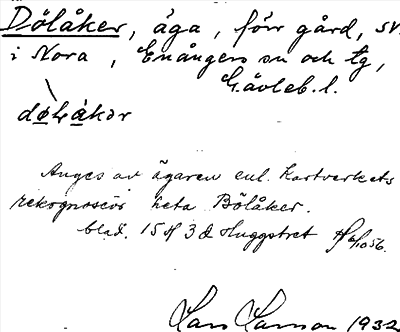 Dölåker, äga, förr gård, sv.
i Nora, Enångers sn och tg,
Gävleb. l.
dø̀lákər
Anges av ägaren enl. Kartverkets
rekognoscör heta Bölåker.
blad. 15 H 3 d Huggstret 6/10 56.
Lars Larson 1932